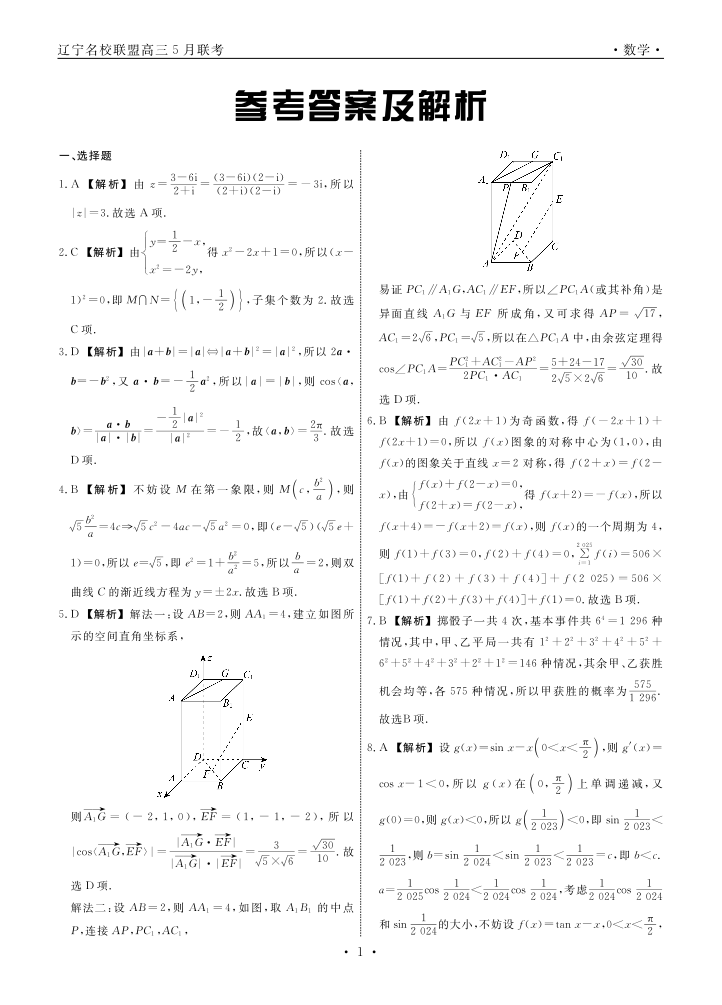 辽宁名校联盟高三 5 月联考 · 数学 ·
参考答案及解析
一、选择题
1. A 【解析】 由 z=\frac{3-6i}{2+i}=\frac{(3-6i)(2-i)}{(2+i)(2-i)}=-3i,所以
|z|=3. 故选 A 项.
2. C 【解析】由\begin{cases}y=\frac{1}{2}-x,\\x^2=-2y,\end{cases}得 x²-2x+1=0,所以(x-
1)²=0,即 M∩N=\{(1,-\frac{1}{2})\},子集个数为 2. 故选
C 项.
3. D 【解析】由|a+b|=|a|⇔|a+b|²=|a|²,所以 2a·
b=-b²,又 a·b=-\frac{1}{2}a²,所以|a|=|b|,则 cos⟨a,
b⟩=\frac{a·b}{|a|·|b|}=\frac{-\frac{1}{2}|a|²}{|a|²}=-\frac{1}{2},故⟨a,b⟩=\frac{2π}{3}. 故选
D 项.
4. B 【解析】 不妨设 M 在第一象限,则 M(c,\frac{b²}{a}),则
√5\frac{b²}{a}=4c⇒√5c²-4ac-√5a²=0,即(e-√5)(√5e+
1)=0,所以 e=√5,即 e²=1+\frac{b²}{a²}=5,所以\frac{b}{a}=2,则双
曲线 C 的渐近线方程为 y=±2x. 故选 B 项.
5. D 【解析】解法一:设 AB=2,则 AA₁=4,建立如图所
示的空间直角坐标系,
z
D₁ G C₁
A B₁
E
D C y
F
A B
x
则\overrightarrow{A₁G}=(-2,1,0),\overrightarrow{EF}=(1,-1,-2),所以
|cos⟨\overrightarrow{A₁G},\overrightarrow{EF}⟩|=\frac{|\overrightarrow{A₁G}·\overrightarrow{EF}|}{|\overrightarrow{A₁G}|·|\overrightarrow{EF}|}=\frac{3}{√5×√6}=\frac{√30}{10}. 故
选 D 项.
解法二:设 AB=2,则 AA₁=4,如图,取 A₁B₁ 的中点
P,连接 AP,PC₁,AC₁,
D₁ G C₁
A₁ P B₁
E
D C
F
A B
易证 PC₁∥A₁G,AC₁∥EF,所以∠PC₁A(或其补角)是
异面直线 A₁G 与 EF 所成角,又可求得 AP=√17,
AC₁=2√6,PC₁=√5,所以在△PC₁A 中,由余弦定理得
cos∠PC₁A=\frac{PC₁²+AC₁²-AP²}{2PC₁·AC₁}=\frac{5+24-17}{2√5×2√6}=\frac{√30}{10}. 故
选 D 项.
6. B 【解析】 由 f(2x+1)为奇函数,得 f(-2x+1)+
f(2x+1)=0,所以 f(x)图象的对称中心为(1,0),由
f(x)的图象关于直线 x=2 对称,得 f(2+x)=f(2-
x),由\begin{cases}f(x)+f(2-x)=0,\\f(2+x)=f(2-x),\end{cases}得 f(x+2)=-f(x),所以
f(x+4)=-f(x+2)=f(x),则 f(x)的一个周期为 4,
则 f(1)+f(3)=0,f(2)+f(4)=0,\sum_{i=1}^{2 025} f(i)=506×
[f(1)+f(2)+f(3)+f(4)]+f(2 025)=506×
[f(1)+f(2)+f(3)+f(4)]+f(1)=0. 故选 B 项.
7. B 【解析】掷骰子一共 4 次,基本事件共 6⁴=1 296 种
情况,其中,甲、乙平局一共有 1²+2²+3²+4²+5²+
6²+5²+4²+3²+2²+1²=146 种情况,其余甲、乙获胜
机会均等,各 575 种情况,所以甲获胜的概率为\frac{575}{1 296}.
故选B 项.
8. A 【解析】设 g(x)=sin x-x(0<x<\frac{π}{2}),则 g′(x)=
cos x-1<0,所以 g(x)在(0,\frac{π}{2})上单调递减,又
g(0)=0,则 g(x)<0,所以 g(\frac{1}{2 023})<0,即 sin \frac{1}{2 023}<
\frac{1}{2 023},则 b=sin \frac{1}{2 024}<sin \frac{1}{2 023}<\frac{1}{2 023}=c,即 b<c.
a=\frac{1}{2 025}cos \frac{1}{2 024}<\frac{1}{2 024}cos \frac{1}{2 024},考虑\frac{1}{2 024}cos \frac{1}{2 024}
和 sin \frac{1}{2 024}的大小,不妨设 f(x)=tan x-x,0<x<\frac{π}{2},
· 1 ·